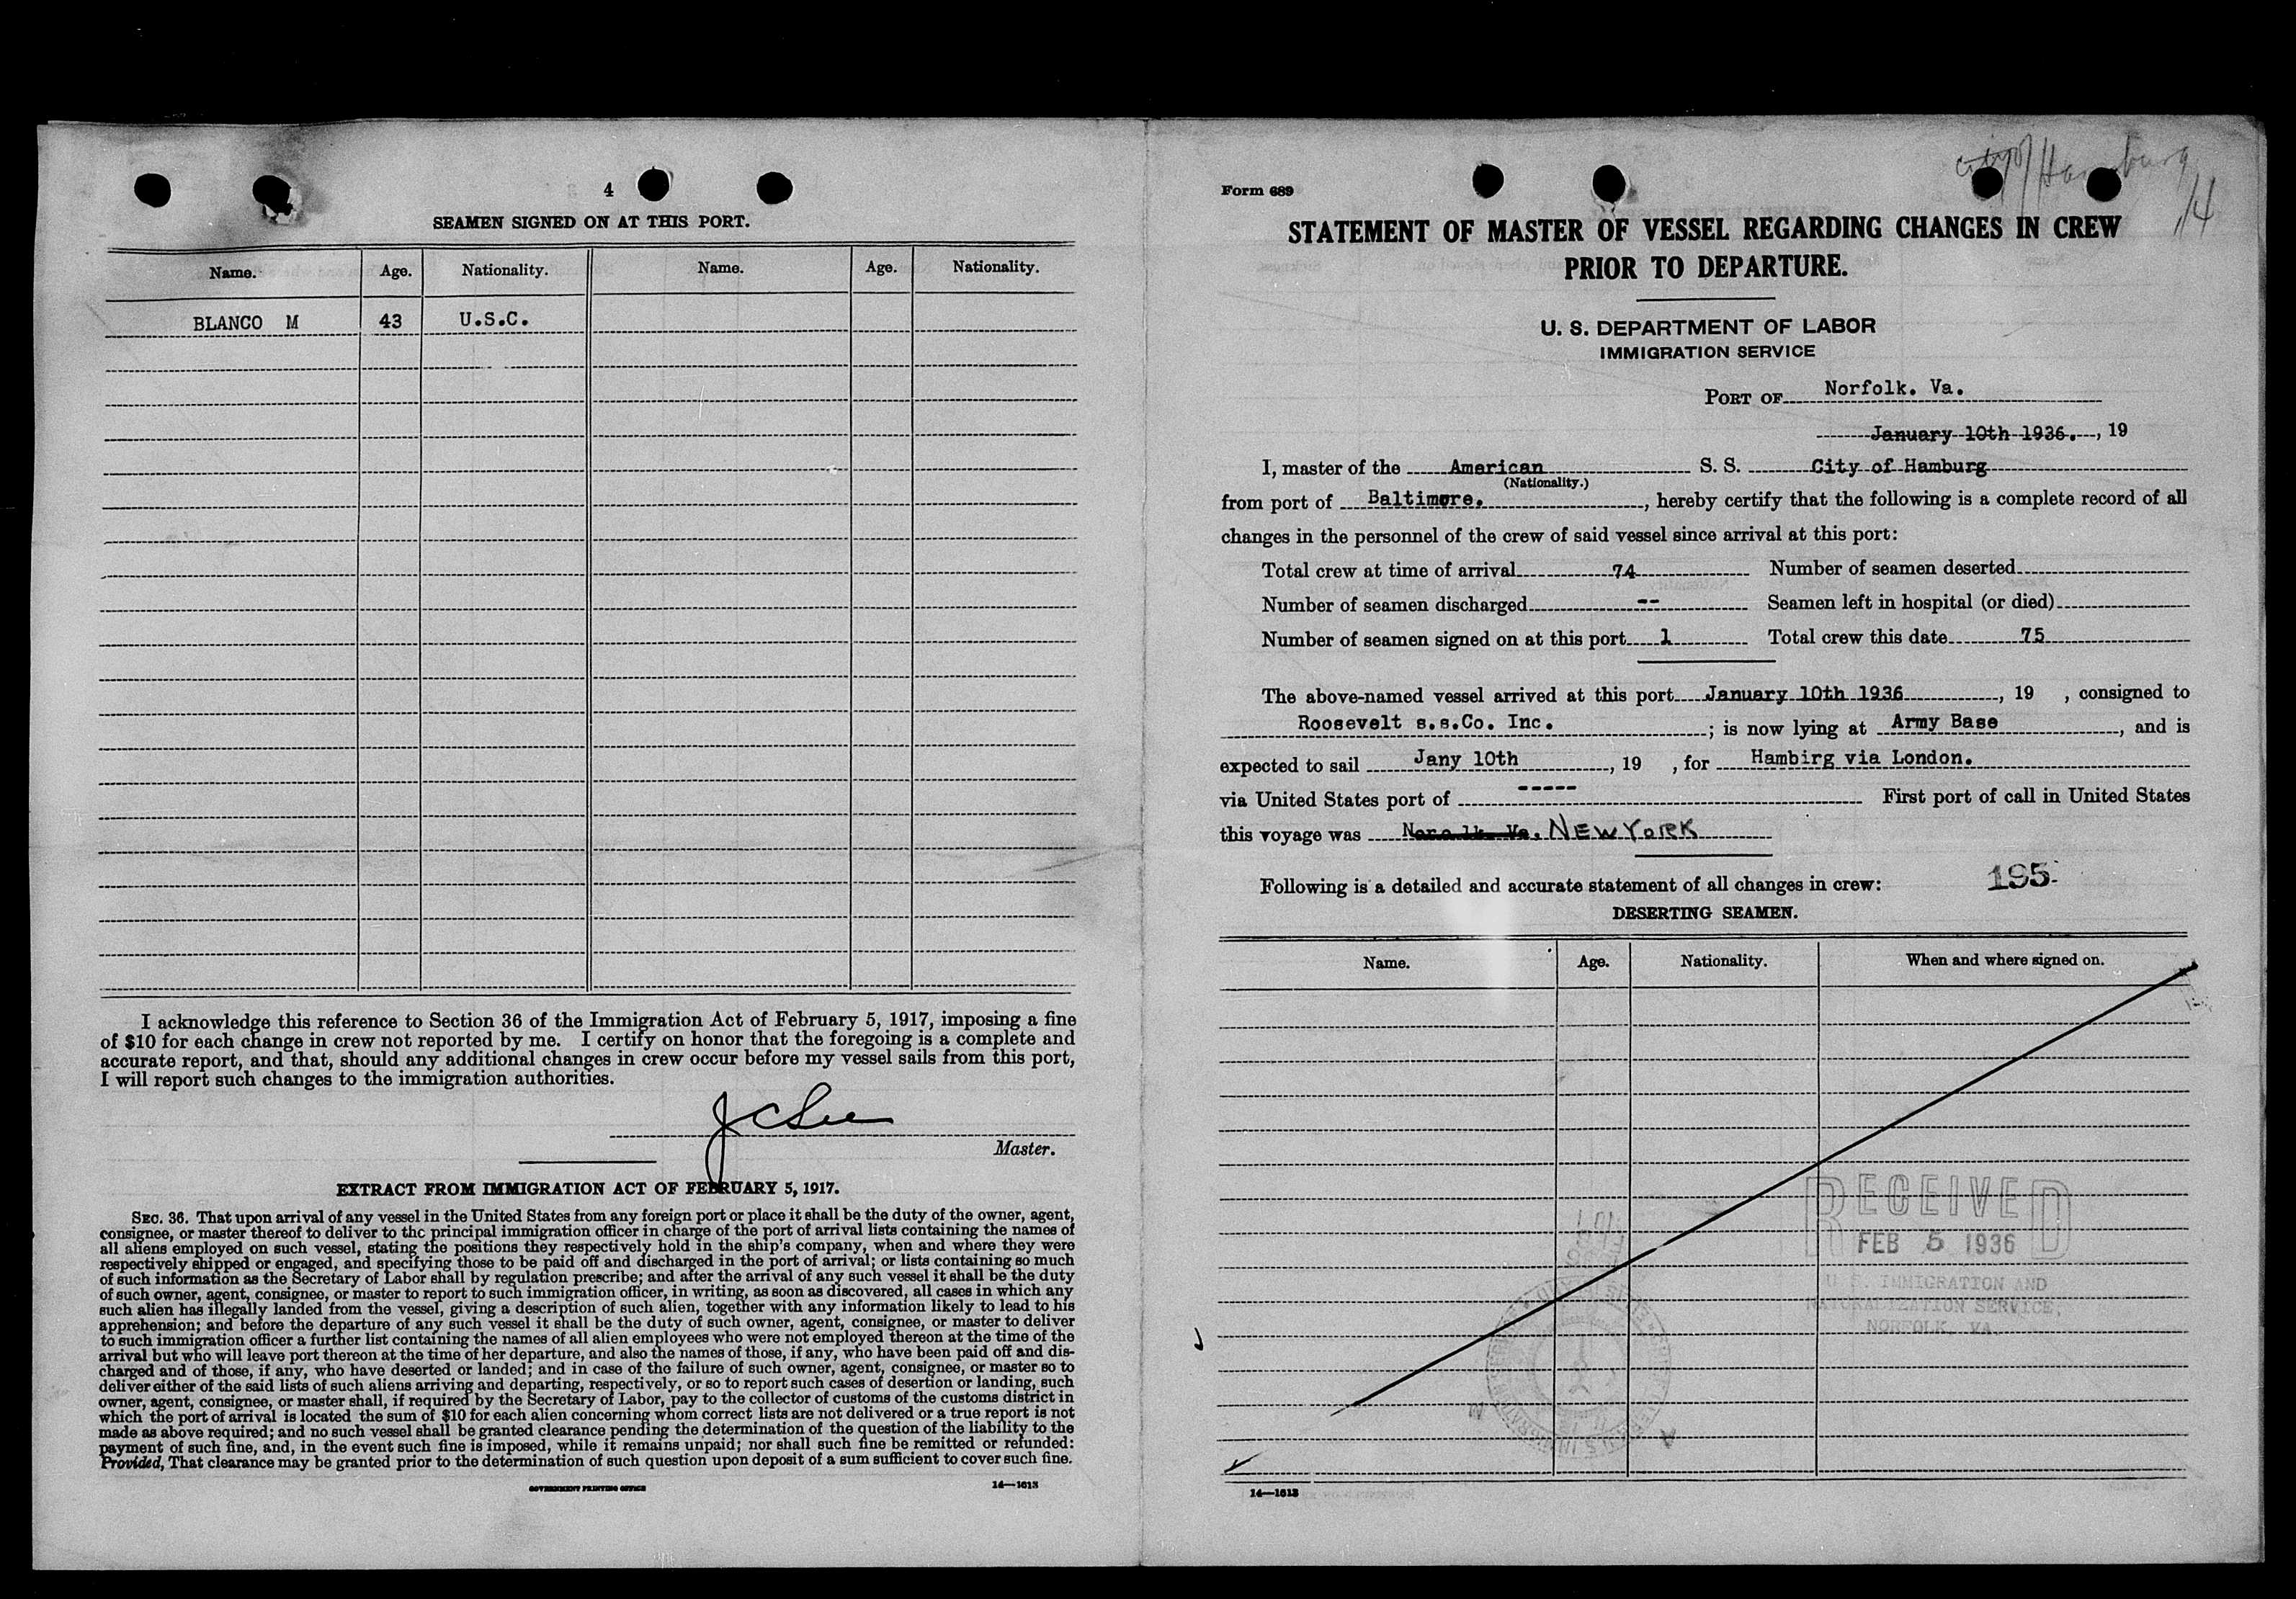 4
SEAMEN SIGNED ON AT THIS PORT.
Name. Age. Nationality. Name. Age. Nationality.
BLANCO M 43 U.S.C.
I acknowledge this reference to Section 36 of the Immigration Act of February 5, 1917, imposing a fine
of $10 for each change in crew not reported by me. I certify on honor that the foregoing is a complete and
accurate report, and that, should any additional changes in crew occur before my vessel sails from this port,
I will report such changes to the immigration authorities.
Master.
EXTRACT FROM IMMIGRATION ACT OF FEBRUARY 5, 1917.
SEC. 36. That upon arrival of any vessel in the United States from any foreign port or place it shall be the duty of the owner, agent,
consignee, or master thereof to deliver to the principal immigration officer in charge of the port of arrival lists containing the names of
all aliens employed on such vessel, stating the positions they respectively hold in the ship's company, when and where they were
respectively shipped or engaged, and specifying those to be paid off and discharged in the port of arrival; or lists containing so much
of such information as the Secretary of Labor shall by regulation prescribe; and after the arrival of any such vessel it shall be the duty
of such owner, agent, consignee, or master to report to such immigration officer, in writing, as soon as discovered, all cases in which any
such alien has illegally landed from the vessel, giving a description of such alien, together with any information likely to lead to his
apprehension; and before the departure of any such vessel it shall be the duty of such owner, agent, consignee, or master to deliver
to such immigration officer a further list containing the names of all alien employees who were not employed thereon at the time of the
arrival but who will leave port thereon at the time of her departure, and also the names of those, if any, who have been paid off and dis-
charged and of those, if any, who have deserted or landed; and in case of the failure of such owner, agent, consignee, or master so to
deliver either of the said lists of such aliens arriving and departing, respectively, or so to report such cases of desertion or landing, such
owner, agent, consignee, or master shall, if required by the Secretary of Labor, pay to the collector of customs of the customs district in
which the port of arrival is located the sum of $10 for each alien concerning whom correct lists are not delivered or a true report is not
made as above required; and no such vessel shall be granted clearance pending the determination of the question of the liability to the
payment of such fine, and, in the event such fine is imposed, while it remains unpaid; nor shall such fine be remitted or refunded:
Provided, That clearance may be granted prior to the determination of such question upon deposit of a sum sufficient to cover such fine.
GOVERNMENT PRINTING OFFICE 14—1613
City of Hamburg
14
Form 689
STATEMENT OF MASTER OF VESSEL REGARDING CHANGES IN CREW
PRIOR TO DEPARTURE.
U. S. DEPARTMENT OF LABOR
IMMIGRATION SERVICE
PORT OF Norfolk. Va.
January 10th 1936. , 19
I, master of the American S. S. City of Hamburg
(Nationality.)
from port of Baltimore. , hereby certify that the following is a complete record of all
changes in the personnel of the crew of said vessel since arrival at this port:
Total crew at time of arrival 74 Number of seamen deserted
Number of seamen discharged -- Seamen left in hospital (or died)
Number of seamen signed on at this port 1 Total crew this date 75
The above-named vessel arrived at this port January 10th 1936 , 19 , consigned to
Roosevelt s.s.Co. Inc. ; is now lying at Army Base , and is
expected to sail Jany 10th , 19 , for Hambirg via London.
via United States port of ----- First port of call in United States
this voyage was NEW YORK
Following is a detailed and accurate statement of all changes in crew: 195
DESERTING SEAMEN.
Name. Age. Nationality. When and where signed on.
RECEIVED
FEB 5 1936
U. S. IMMIGRATION AND
NATURALIZATION SERVICE,
NORFOLK, VA.
14—1613